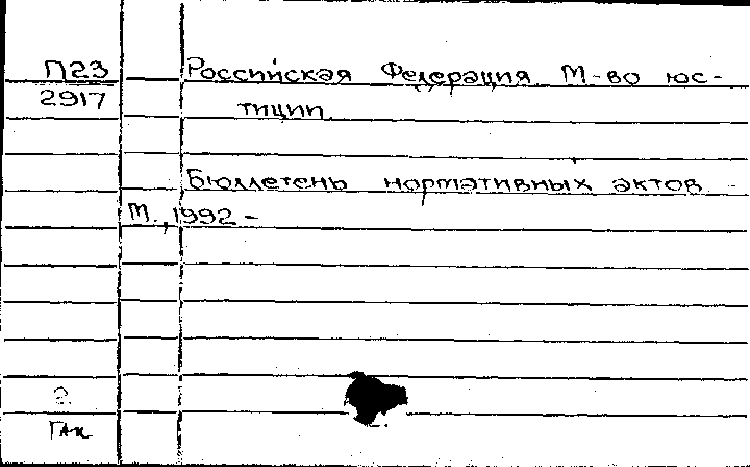 П23 Российская Федерация. М-во юс-
2917 тиции.
Бюллетень нормативных актов. -
М., 1992 -
2
ГАК